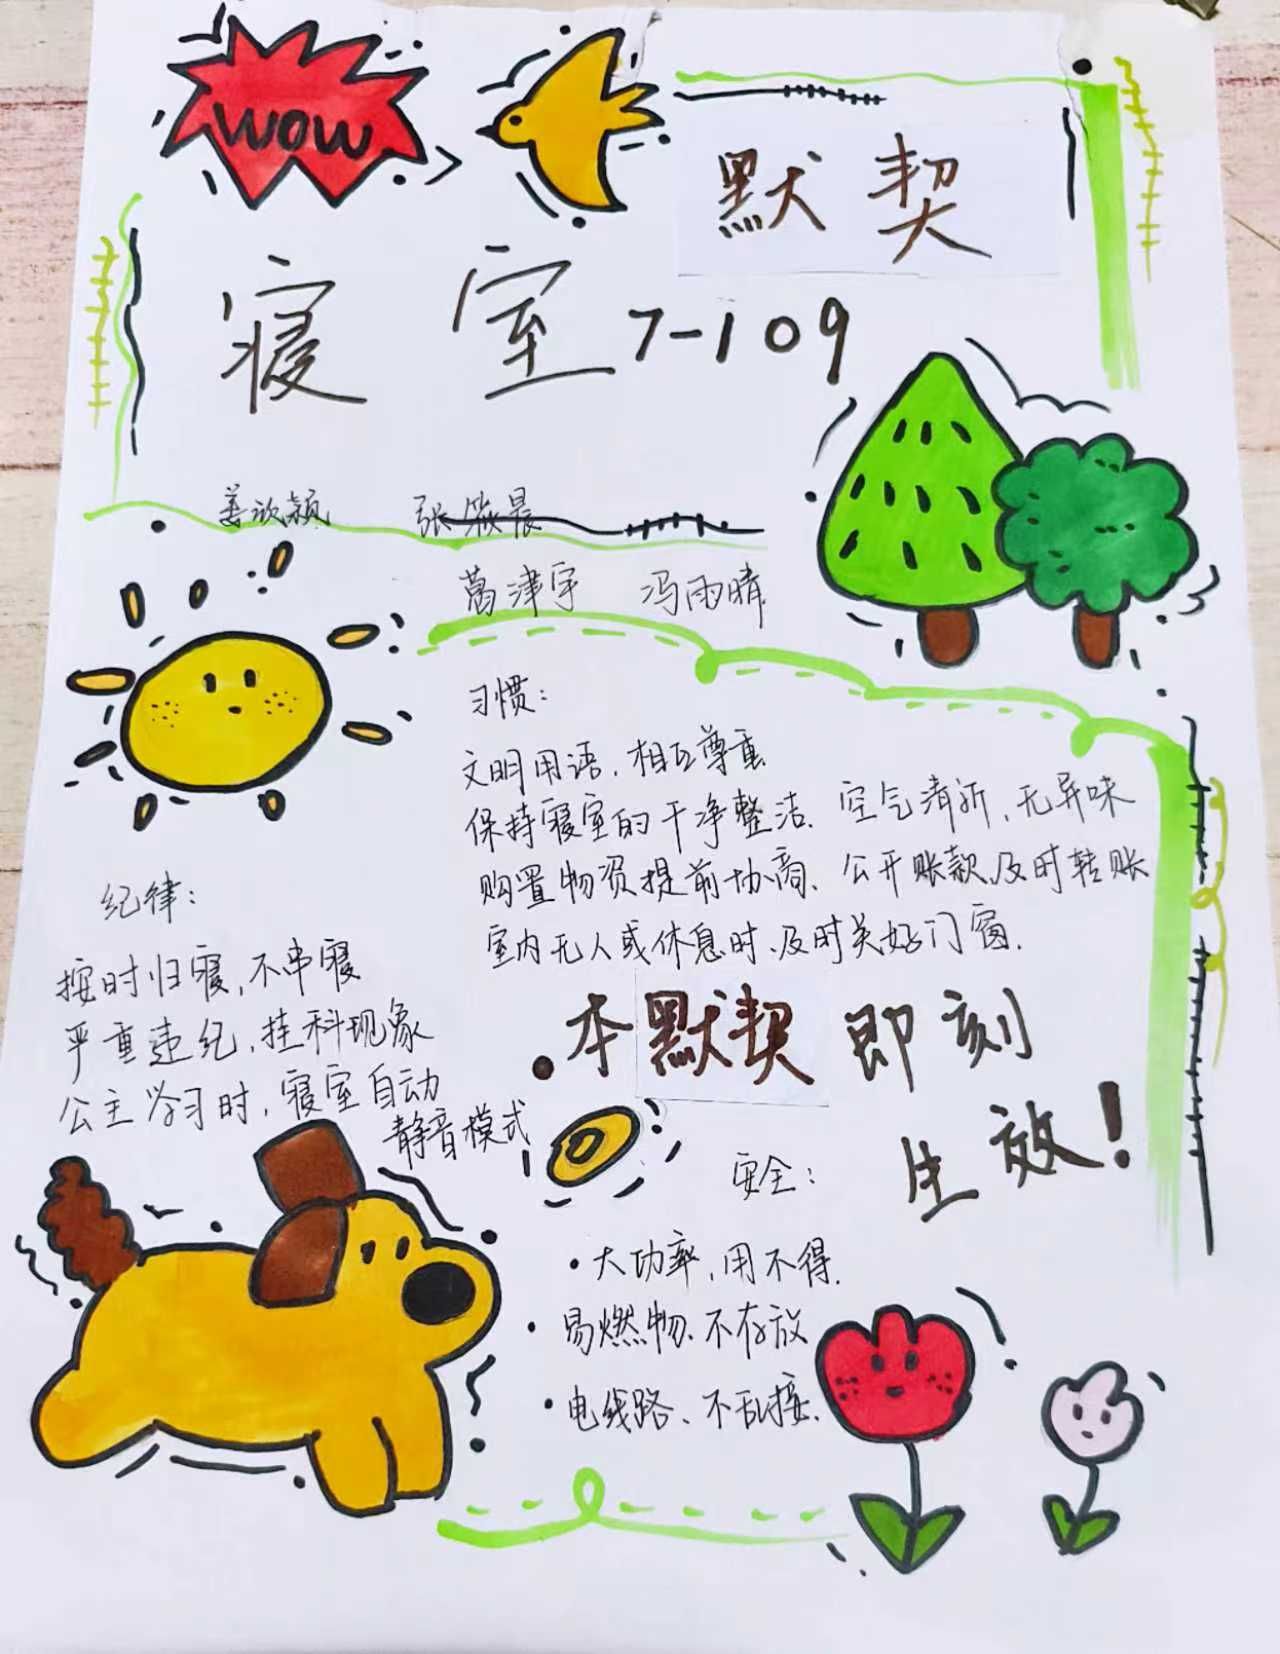 WOW
默契
寝室7-109
姜欣颖 张筱晨
葛津宇 冯雨晴
习惯：
文明用语，相互尊重
保持寝室的干净整洁、空气清新、无异味
购置物资提前协商、公开账款、及时转账
室内无人或休息时、及时关好门窗.
纪律：
按时归寝，不串寝
严重违纪，挂科现象
公主学习时，寝室自动
静音模式
·本默契即刻
生效！
安全：
·大功率，用不得.
·易燃物、不存放
·电线路、不乱接.